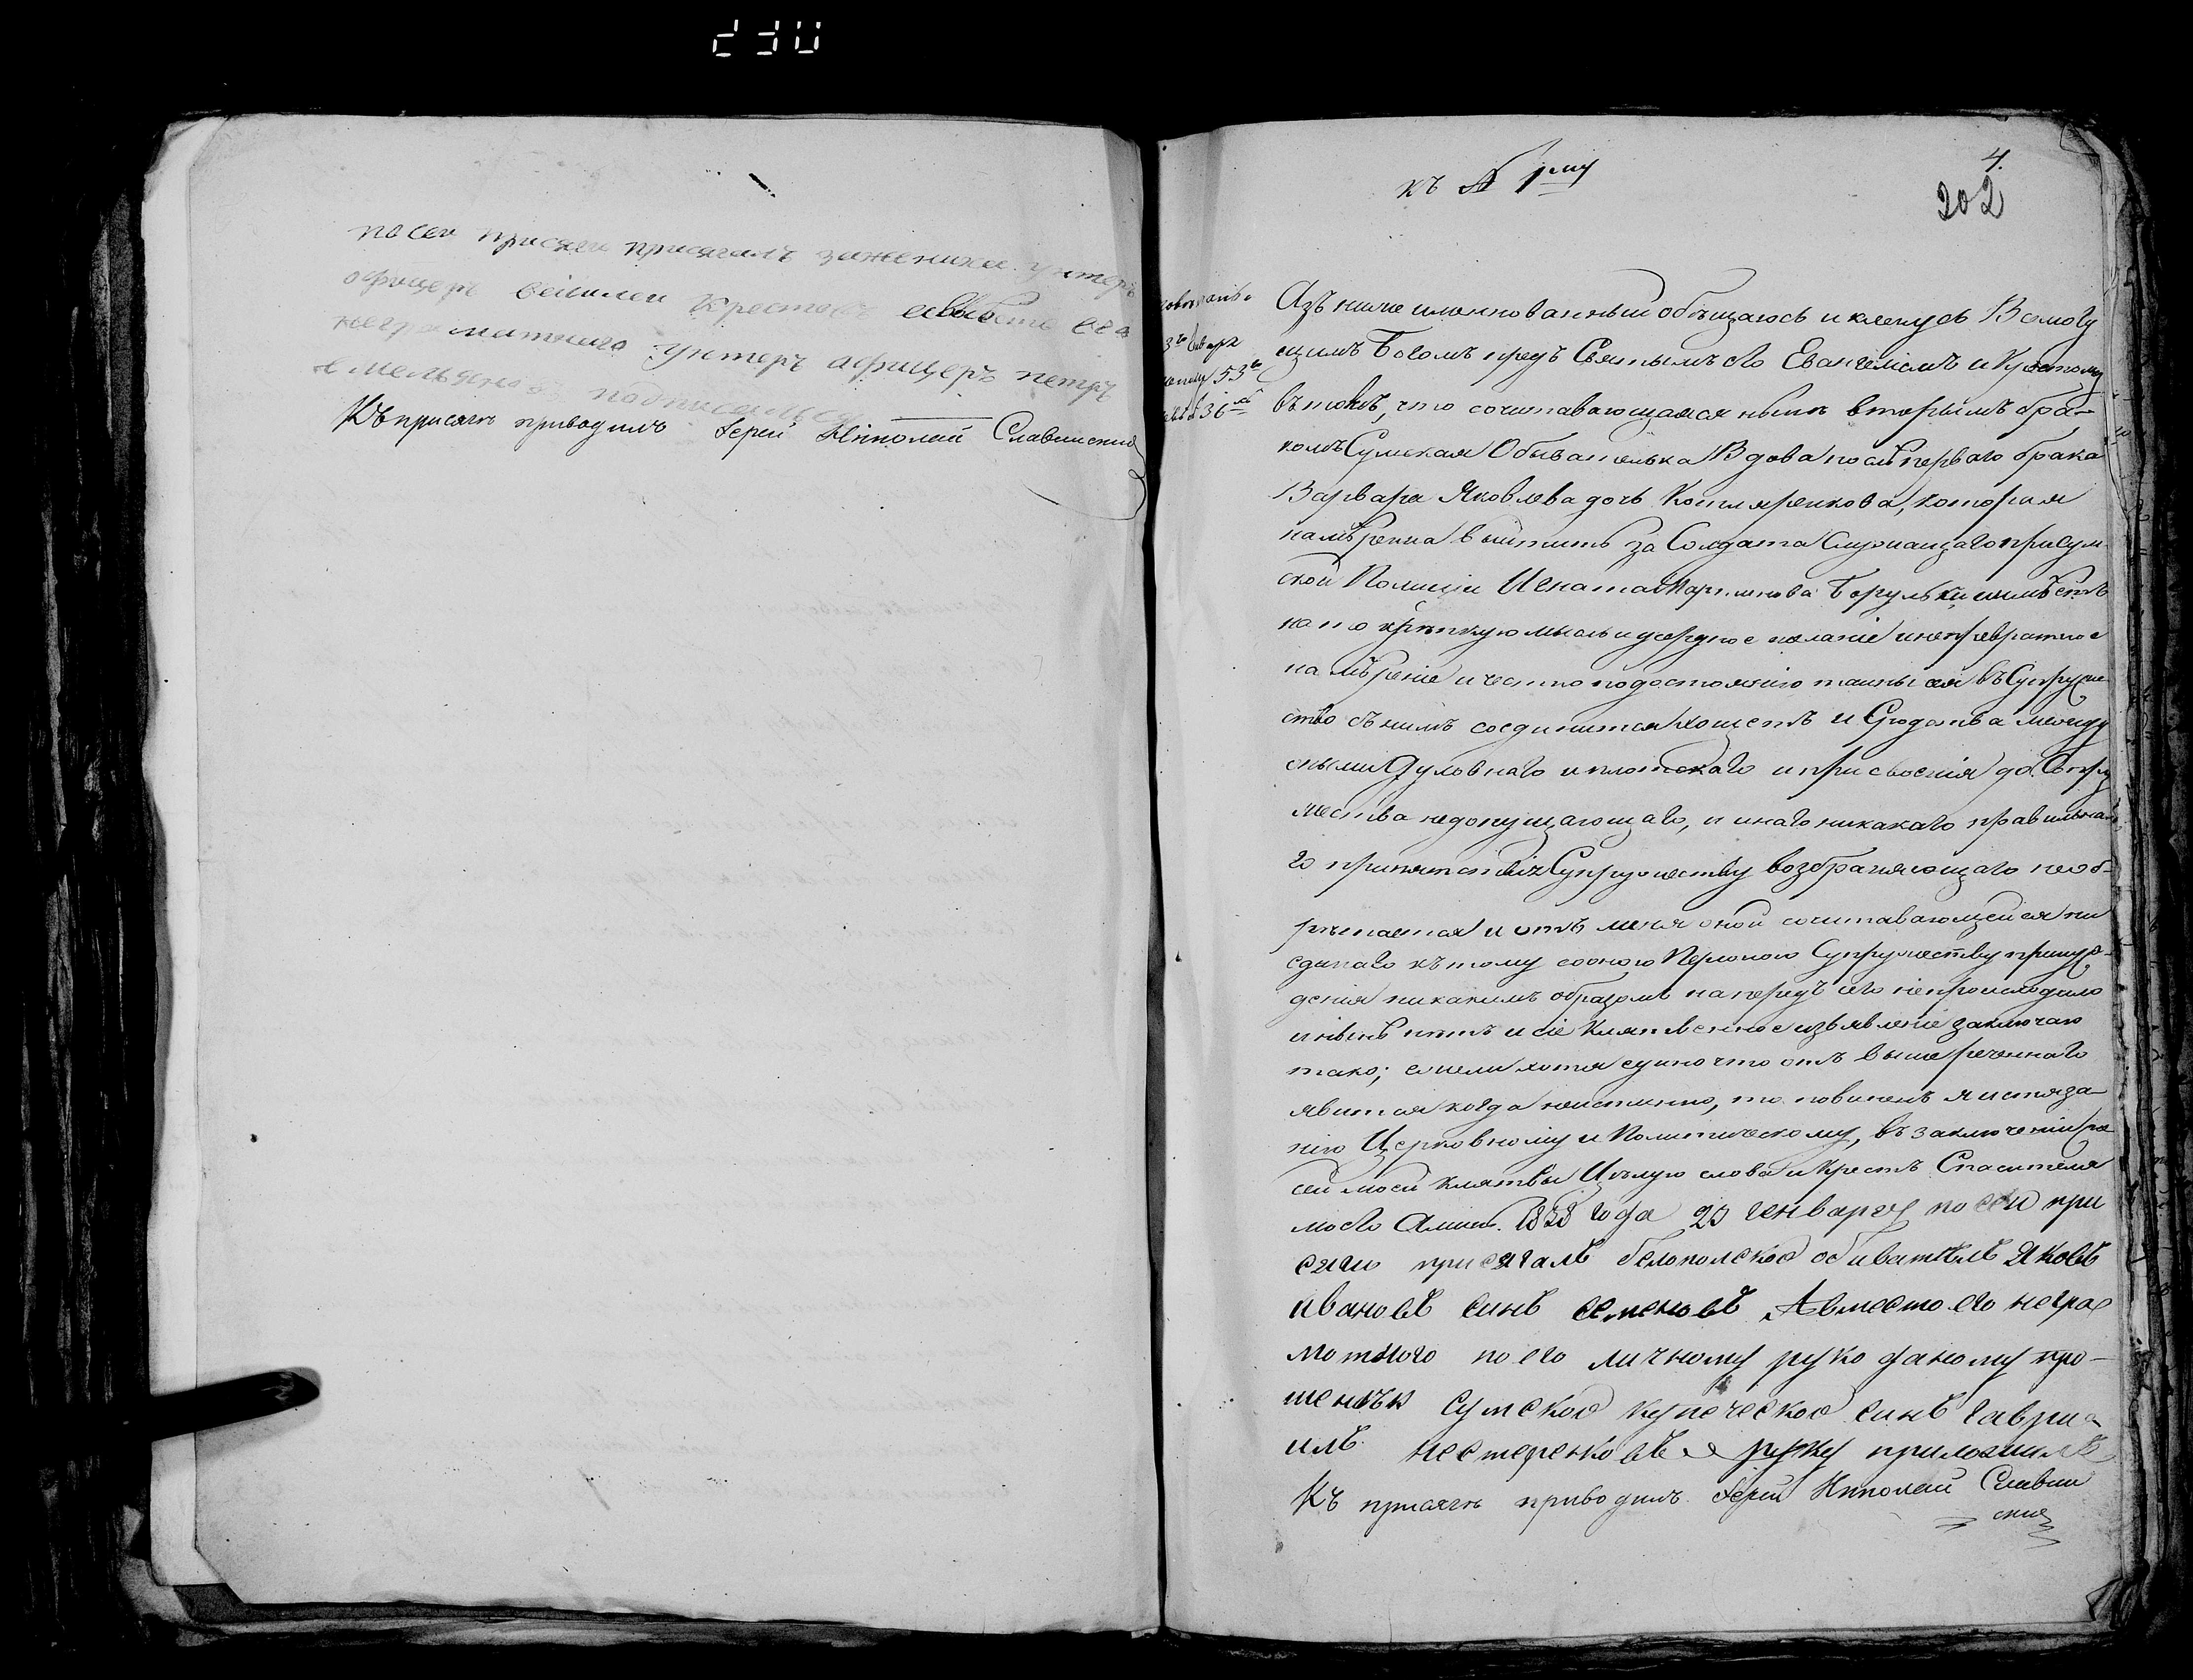 посеи присяги присягалъ
офицеръ Василеи Крестовъ авместо его
неграматнаго унтеръ афицеръ петръ
подписалься
Къ присягѣ приводилъ Іерей Николай Славинскій
къ № 1му
4.
202
Азъ ниже именнованный обѣщаюсь и кленусь Всемогу
щимъ Богомъ предъ Святымъ его Евангеліемъ и Крестомъ
53го
36ю
въ томъ, что сочитавающаяся нынѣ вторымъ бра-
комъ Сумская Обывателька Вдова послѣ перваго брака
Варвара Яковлева дочь Котляренкова, которая
намѣренна выйтить за Солдата Служащаго при Сум
ской Полиціи Игната Мартинова Борульки имѣетъ
на то крѣпкую мысль и усердное желаніе и непревратное
намѣреніе и честно по достоянію тайны сея въ Супруже
ство съ нимъ соединится хощетъ и Сродства между
оными Духовнаго и плотскаго и присвоенія до Супру
жества недопущающаго, и инаго никакаго правильна
го припятствія Супружеству возбраняющаго необ-
рѣтается и отъ меня оной сочитавающейся ни
единаго къ тому сооною Персоною Супружеству принуж-
денія никакимъ образомъ напередъ сего непроисходило
и нынѣ нѣтъ и сіе клятвенное изъявленіе заключаю
тако; ежели хотя едино что отъ выше реченнаго
явится когда неистинно, то повиненъ я истяза-
нію Церковному и Политическому, въ заключеніи же
сей моей клятвы Цѣлую слова и Крестъ Спасителя
моего Аминь. 1838 года 23 генваря по сеи при
сяги присягалъ белополскоо обиватѣль Яковъ
ивановъ синъ семеновъ Авместо его негра
мотного по его личному руко даному про-
шенію сумскоо купеческоо синъ гаври
илъ нестеренковъ руку приложилъ
Къ присягѣ приводилъ Іерей Николай Славин
скій